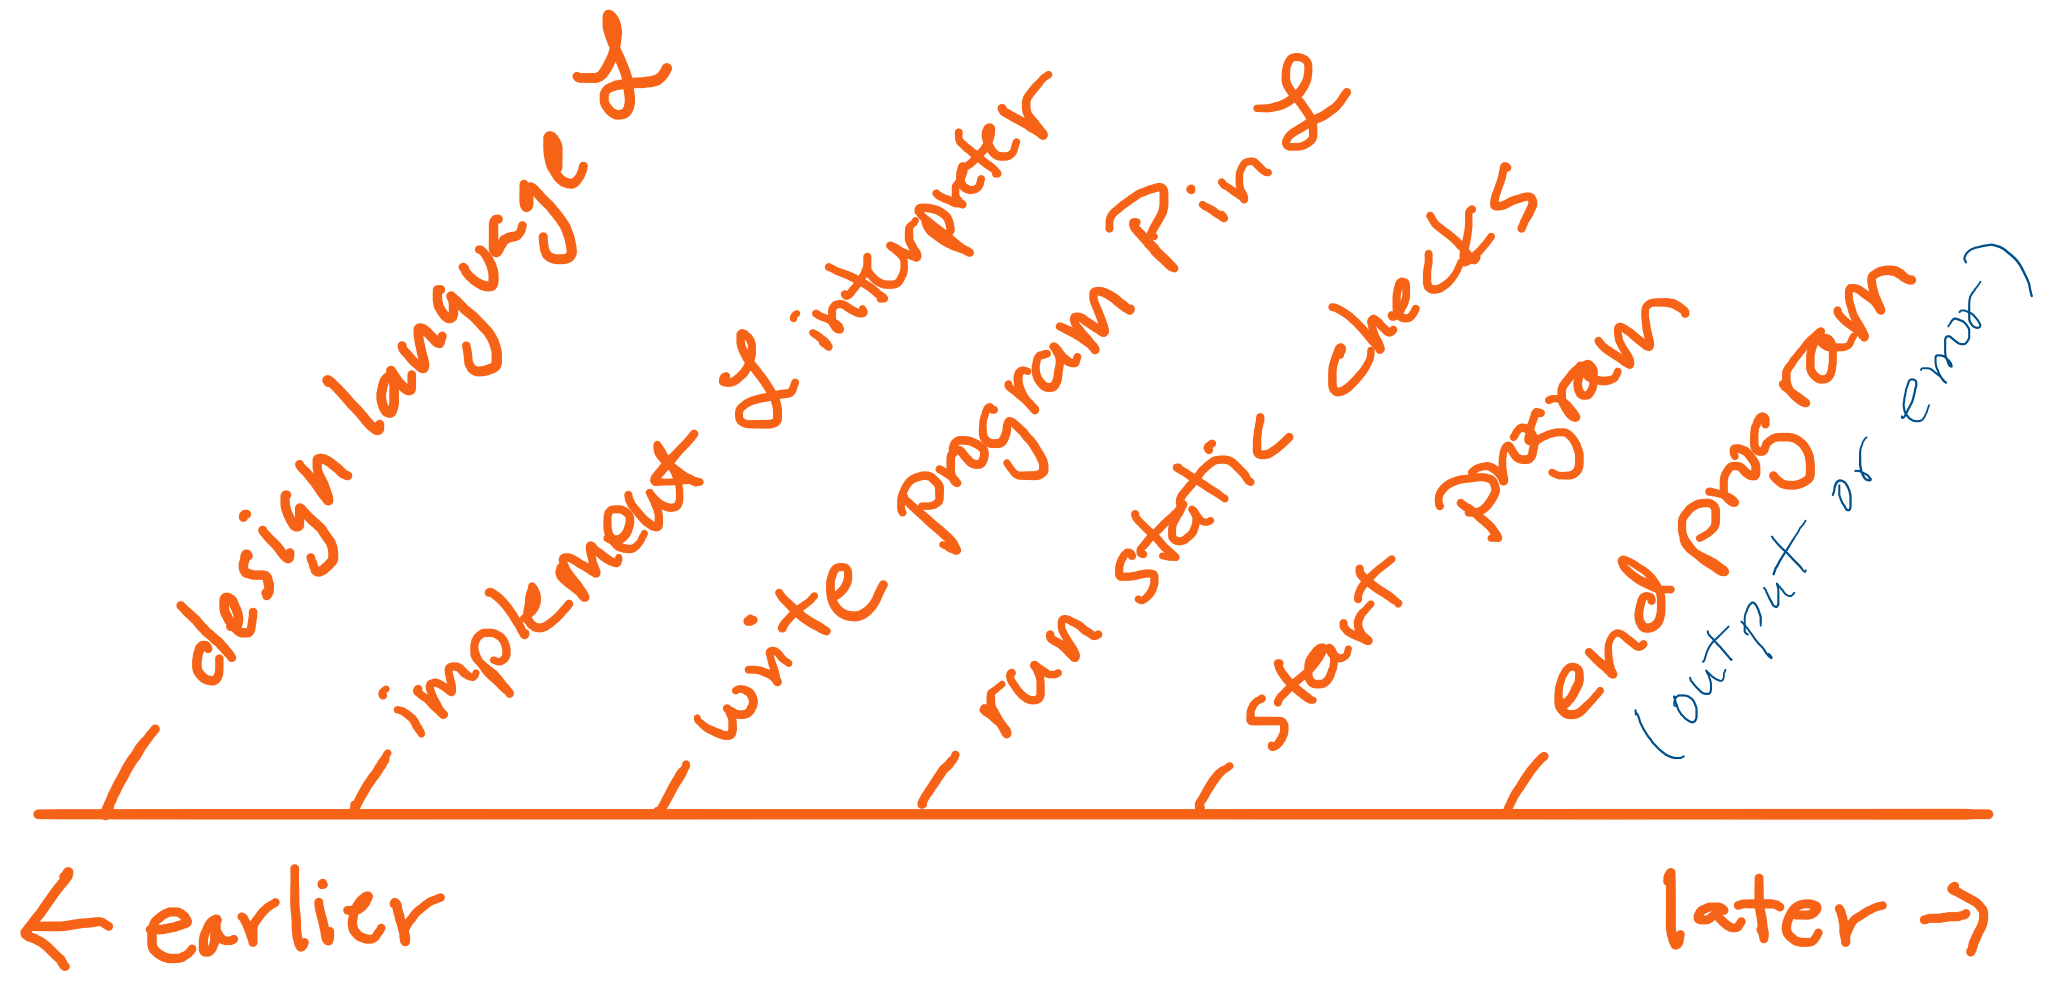 design language ℒ
implement ℒ interpreter
write program P in ℒ
run static checks
start program
end program
(output or error)
← earlier
later →